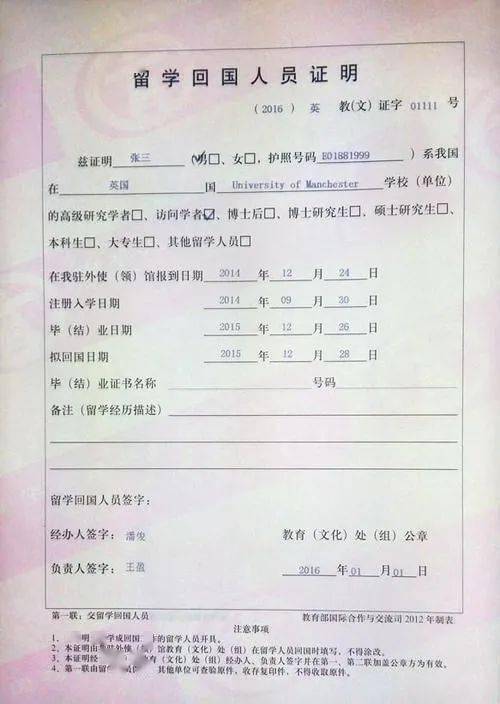 留学回国人员证明
（2016）英 教(文)证字 01111 号
兹证明 张三 （男☑、女□，护照号码 E01881999 ）系我国
在 英国 国 University of Manchester 学校（单位）
的高级研究学者□、访问学者☑、博士后□、博士研究生□、硕士研究生□、
本科生□、大专生□、其他留学人员□
在我驻外使（领）馆报到日期 2014 年 12 月 24 日
注册入学日期 2014 年 09 月 30 日
毕（结）业日期 2015 年 12 月 26 日
拟回国日期 2015 年 12 月 28 日
毕（结）业证书名称 号码
备注（留学经历描述）
留学回国人员签字：
经办人签字：潘俊 教育（文化）处（组）公章
负责人签字：王盈 2016 年 01 月 01 日
第一联：交留学回国人员 教育部国际合作与交流司 2012 年制表
注意事项
1、 明 学成回国 的留学人员开具。
2、本证明由 驻外使（领）馆教育（文化）处（组）在留学人员回国时填写，不得涂改。
3、本证明经 教育（文化）处（组）经办人、负责人签字并在第一、第二联加盖公章方为有效。
4、第一联由留学人员保 其他单位可查验原件，收存复印件，不得收取原件。